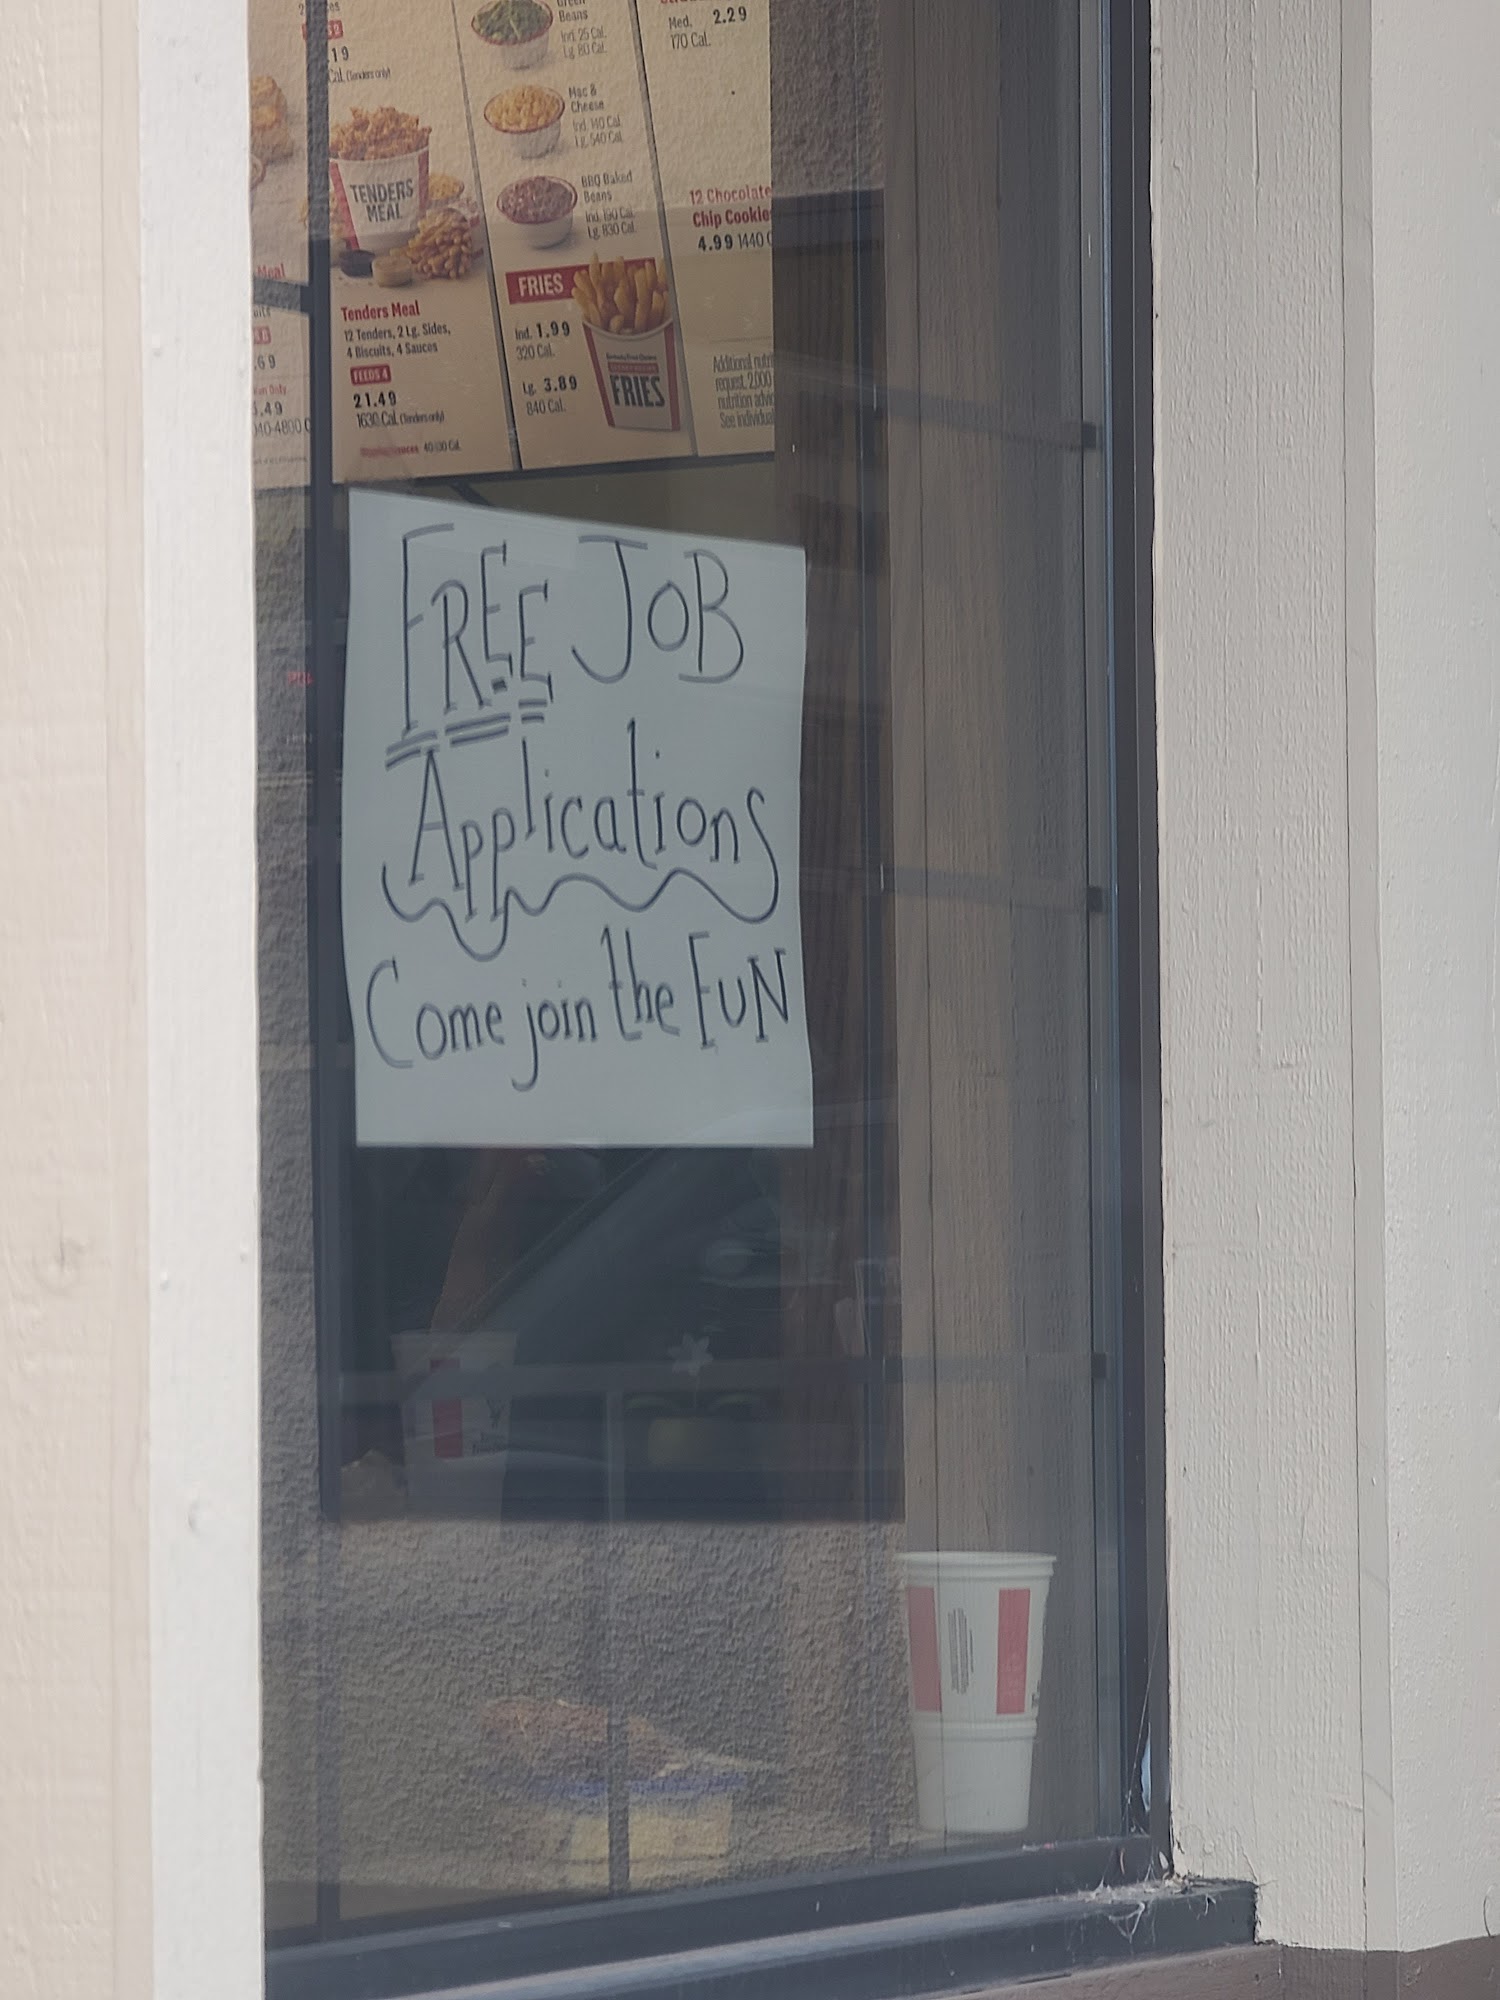 .19
Cal. (Tenders only)
TENDERS
MEAL
Meal
.69
.49
Tenders Meal
12 Tenders, 2 Lg. Sides,
4 Biscuits, 4 Sauces
FEEDS 4
21.49
1630 Cal. (Tenders only)
Green
Beans
Ind. 25 Cal.
Lg. 80 Cal.
Mac &
Cheese
Ind. 140 Cal.
Lg. 540 Cal.
BBQ Baked
Beans
Ind. 190 Cal.
Lg. 830 Cal.
FRIES
Ind. 1.99
320 Cal.
Lg. 3.89
840 Cal.
FRIES
Med. 2.29
170 Cal.
12 Chocolate
Chip Cookie
4.99 1440 C
Additional nutri
request. 2,000
nutrition advic
See individual
FREE JOB
Applications
Come join the FUN